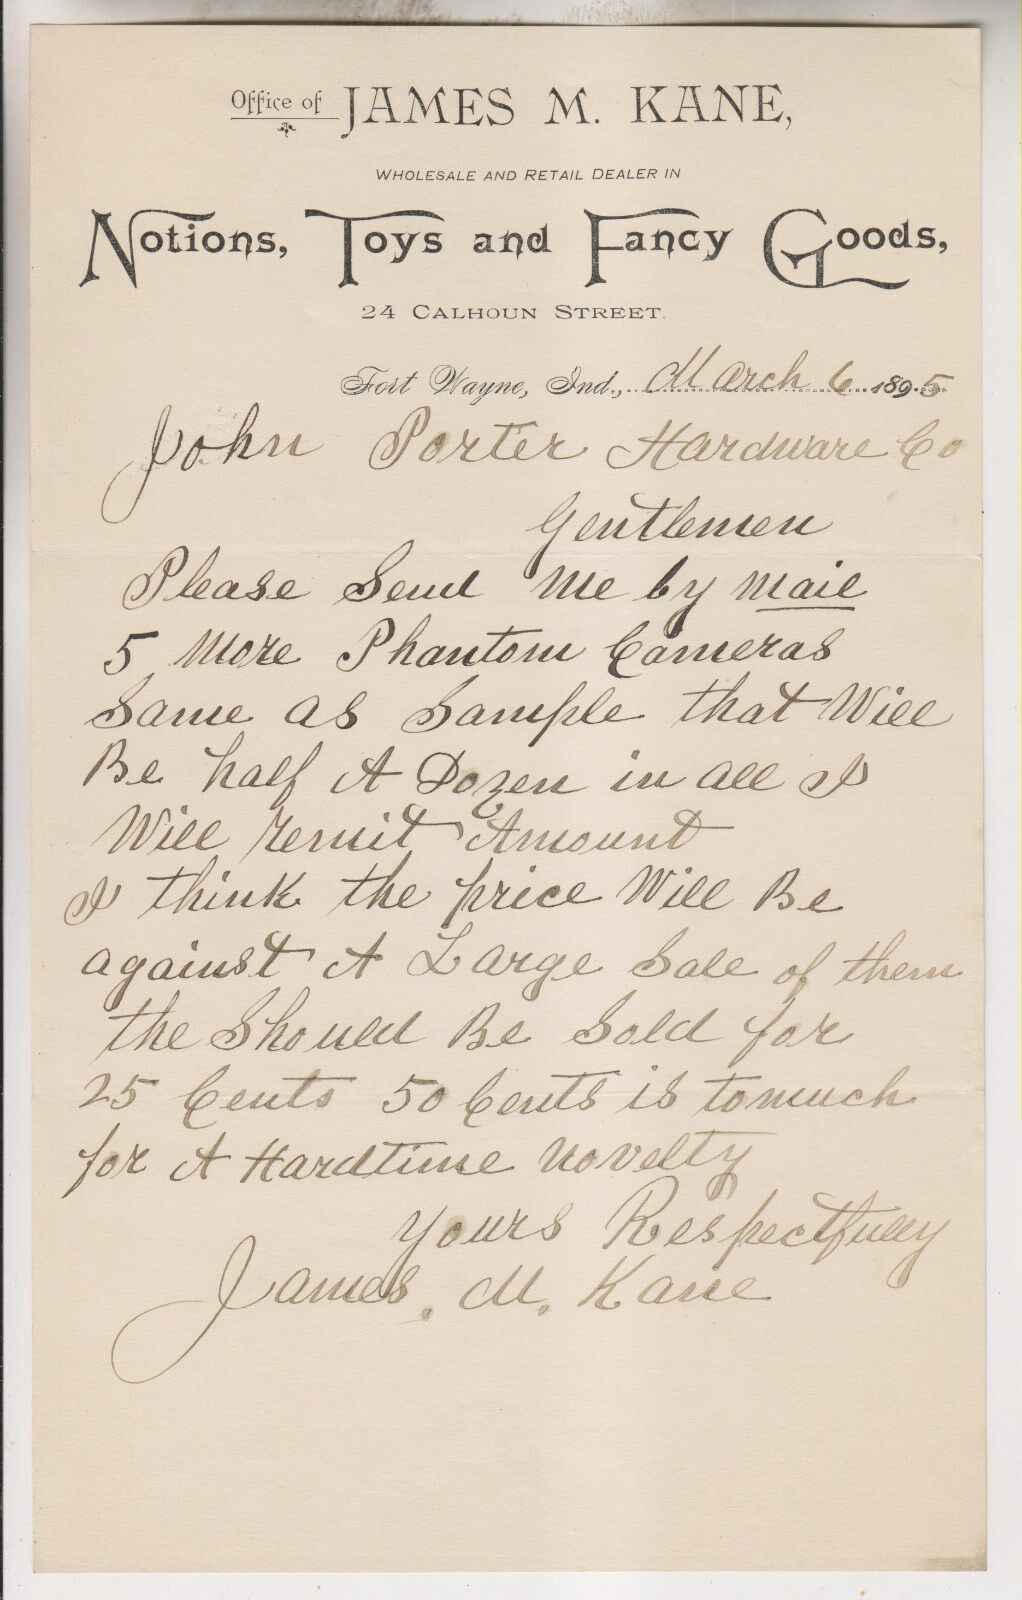 Office of JAMES M. KANE,
WHOLESALE AND RETAIL DEALER IN
Notions, Toys and Fancy Goods,
24 CALHOUN STREET.
Fort Wayne, Ind., March 6 1895
John Porter Hardware Co
Gentlemen
Please Send Me by mail
5 More Phantom Cameras
Same as Sample that Will
Be half A Dozen in all I
Will remit Amount
I think the price Will Be
against A Large Sale of them
the Should Be Sold for
25 Cents 50 Cents is tomuch
for A Hardtime Novelty
Yours Respectfully
James. M. Kane